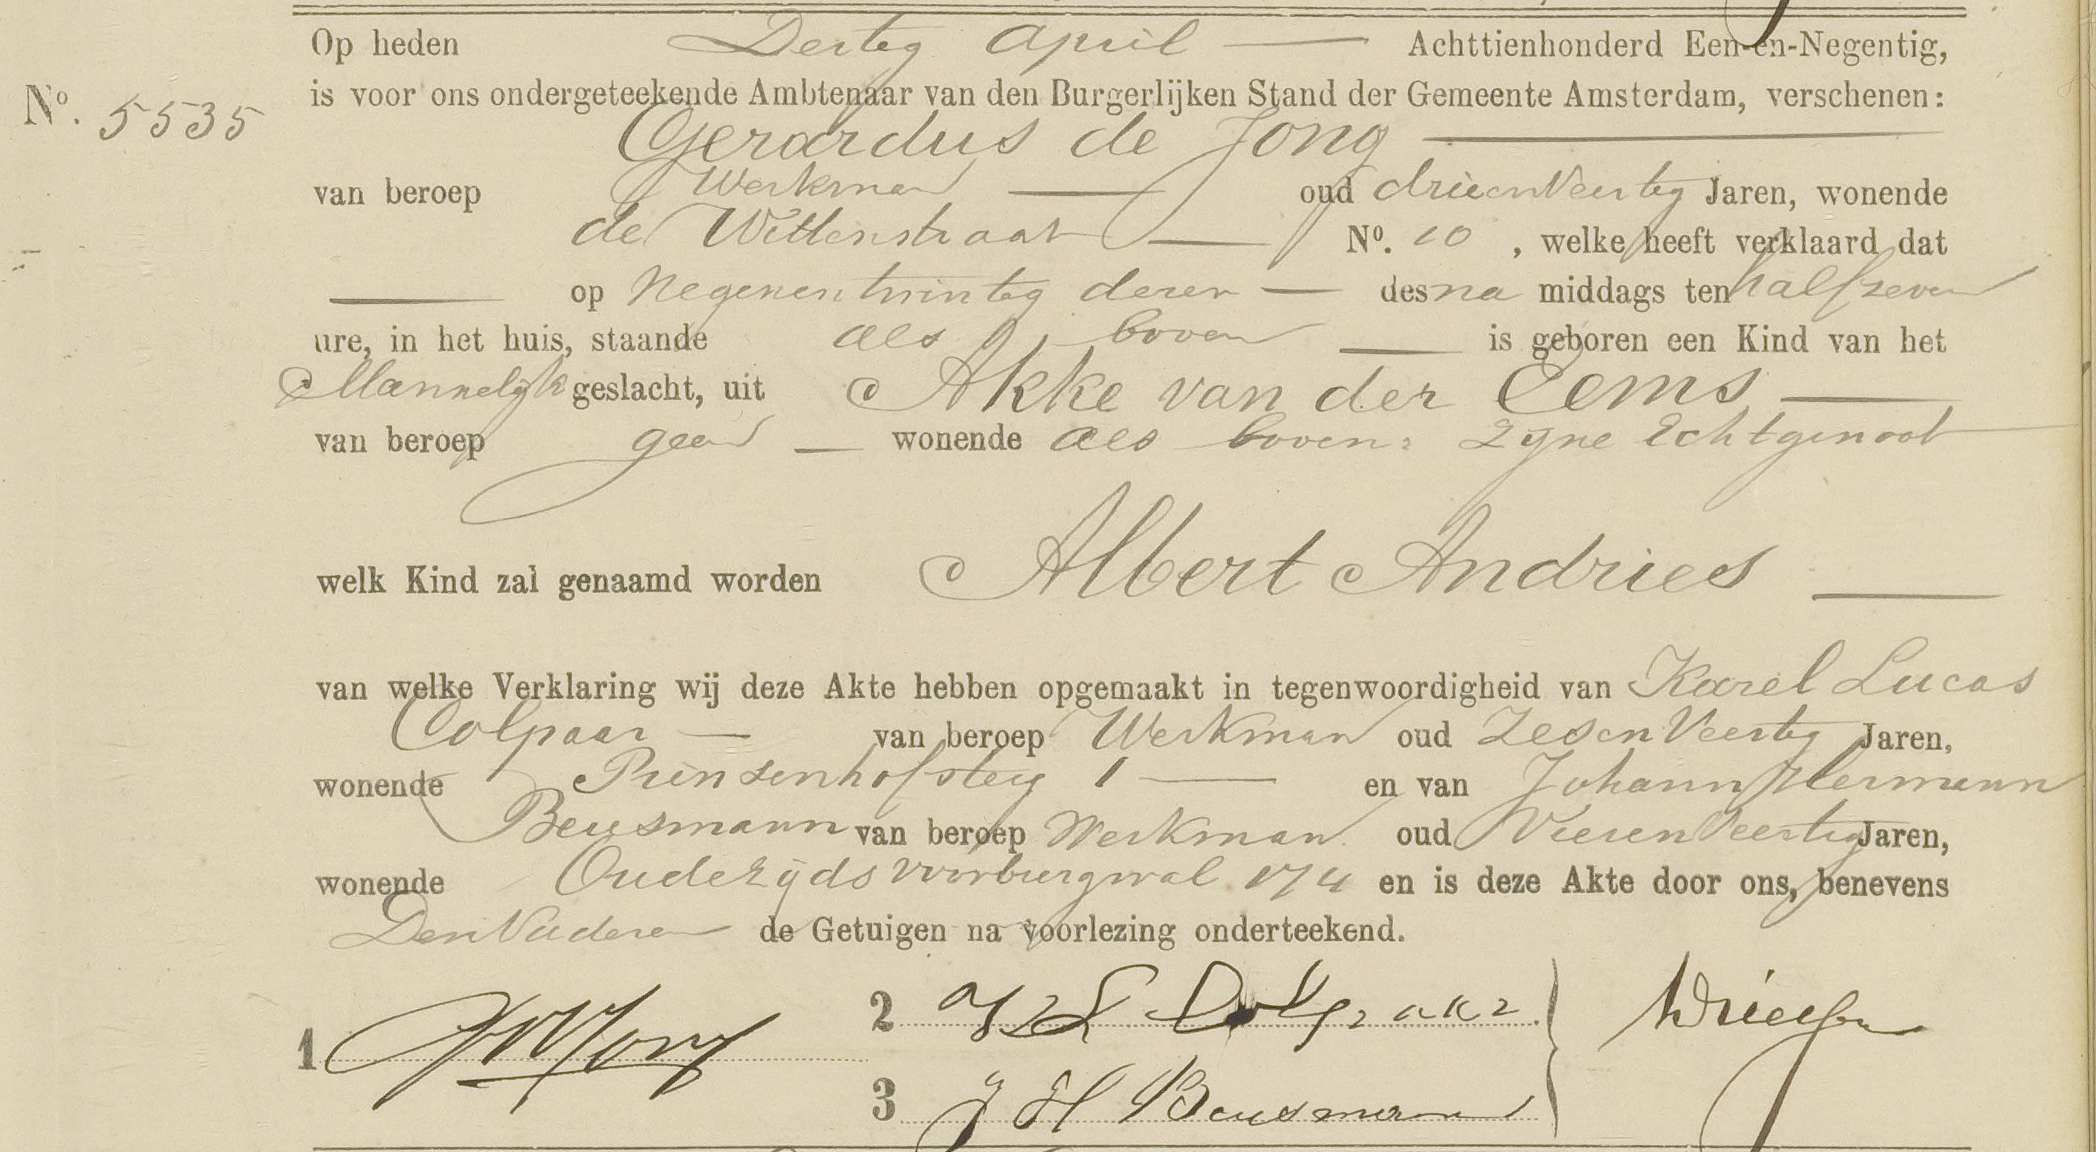 Op heden Dertig April Achttienhonderd Een-en-Negentig,
No. 5535
is voor ons ondergeteekende Ambtenaar van den Burgerlijken Stand der Gemeente Amsterdam, verschenen:
Gerardus de Jong
van beroep Werkman oud drieenveertig Jaren, wonende
de Wittenstraat No. 10, welke heeft verklaard dat
op Negenentwintig dezer des na middags ten half zeven
ure, in het huis, staande als boven is geboren een Kind van het
Mannelijk geslacht, uit Akke van der Eems
van beroep geen wonende als boven: Zijne Echtgenoot
welk Kind zal genaamd worden Albert Andries
van welke Verklaring wij deze Akte hebben opgemaakt in tegenwoordigheid van Karel Lucas
Colpaar van beroep Werkman oud Zesenveertig Jaren,
wonende Prinsenhofsteeg 1 en van Johann Hermann
Beusmann van beroep Werkman oud Vierenveertig Jaren,
wonende Oudezijds voorburgwal 174 en is deze Akte door ons, benevens
Den Vader en de Getuigen na voorlezing onderteekend.
1 Jong
2 K L Colpaar
3 J H Beusmann